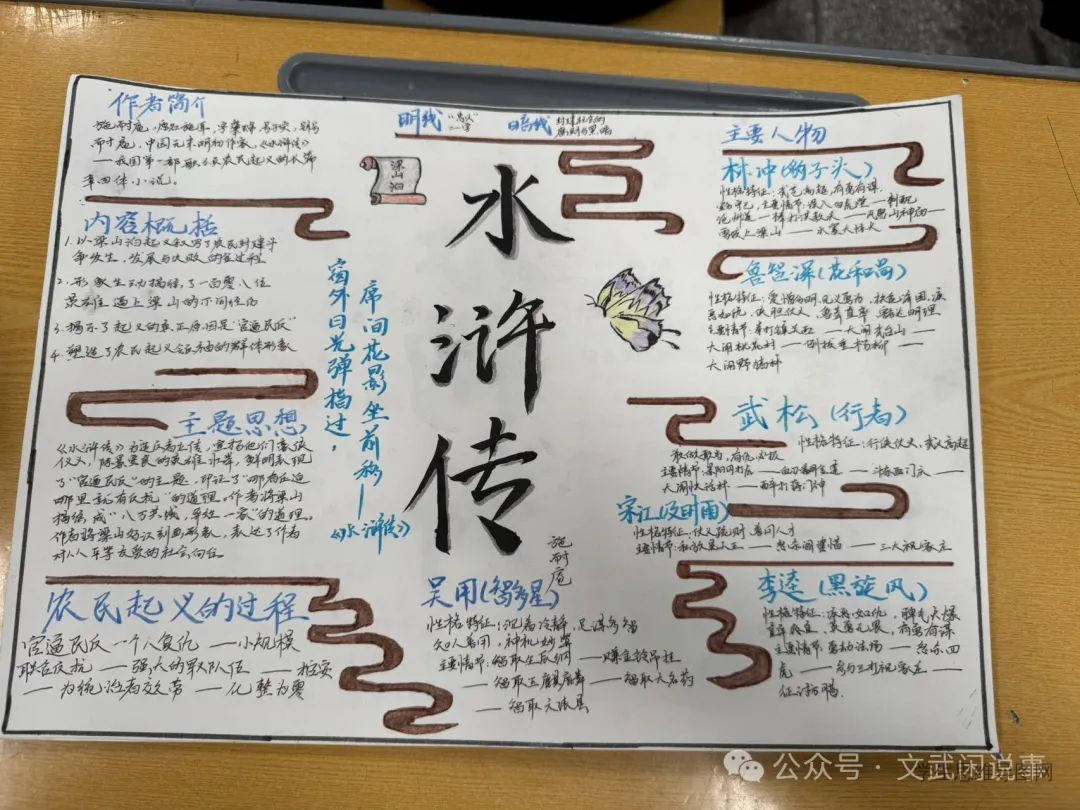 作者简介
施耐庵，
耐庵，中国元末明初作家，《水浒传》
——我国第一部歌颂农民起义的长篇
章回体小说。
内容概括
1.以梁山泊起义叙写了农民封建斗
争发生，发展与失败的全过程
2.形象生动描绘了一百零八位
英雄逼上梁山的不同经历
3.揭示了起义的真正原因是"官逼民反"
4.塑造了农民起义领袖的群体形象
主题思想
《水浒传》为造反者立传，宣扬他们
仗义，除暴安良的英雄，鲜明表现
了"官逼民反"的主题，印证了"哪有压迫
哪里就有反抗"的道理。作者将梁山
描绘成"八方共域，异姓一家"的道理。
作者将梁山好汉刻画形象，表达了作者
对人人平等友爱的社会向往。
农民起义的过程
官逼民反一个人复仇——小规模
联合反抗——强大的军队伍——招安
——为统治者效劳——化整为零
明线 "忠义"一字
暗线 封建社会的腐朽与黑暗
梁山泊
水浒传
席间花影坐前移——
窗外日光弹指过，
《水浒传》
施耐庵
吴用(智多星)
性格特征：沉着冷静，足谋多智
知人善用，神机妙算
主要情节：智取生辰纲——赚金铃吊挂
——智取玉麒麟——智取大名府
——智取文
主要人物
林冲(豹子头)
性格特征：武艺高超，有勇有谋
主要情节：误入白虎堂——刺配
沧州道——棒打洪教头——风雪山神庙——
雪夜上梁山——火
鲁智深(花和尚)
性格特征：爱憎分明，见义勇为，扶危济困，疾
恶如仇，
主要情节：拳打镇关西——大闹五台山——
大闹桃花村——倒拔垂杨柳——
大闹野猪林
武松(行者)
性格特征：行侠仗义，武艺高超
敢做敢为，有仇必报
主要情节：景阳冈打虎——斗杀西门庆——
大闹快活林——醉打蒋门神
宋江(及时雨)
性格特征：仗义疏财，善用人才
主要情节：私放晁天王——怒杀阎婆惜——三打祝家庄
李逵(黑旋风)
性格特征：疾恶如仇，脾气火爆
直率，英勇无畏，有勇有谋
主要情节：劫法场——怒杀四
虎——参与三打祝家庄——
征讨
公众号·文武闲说事